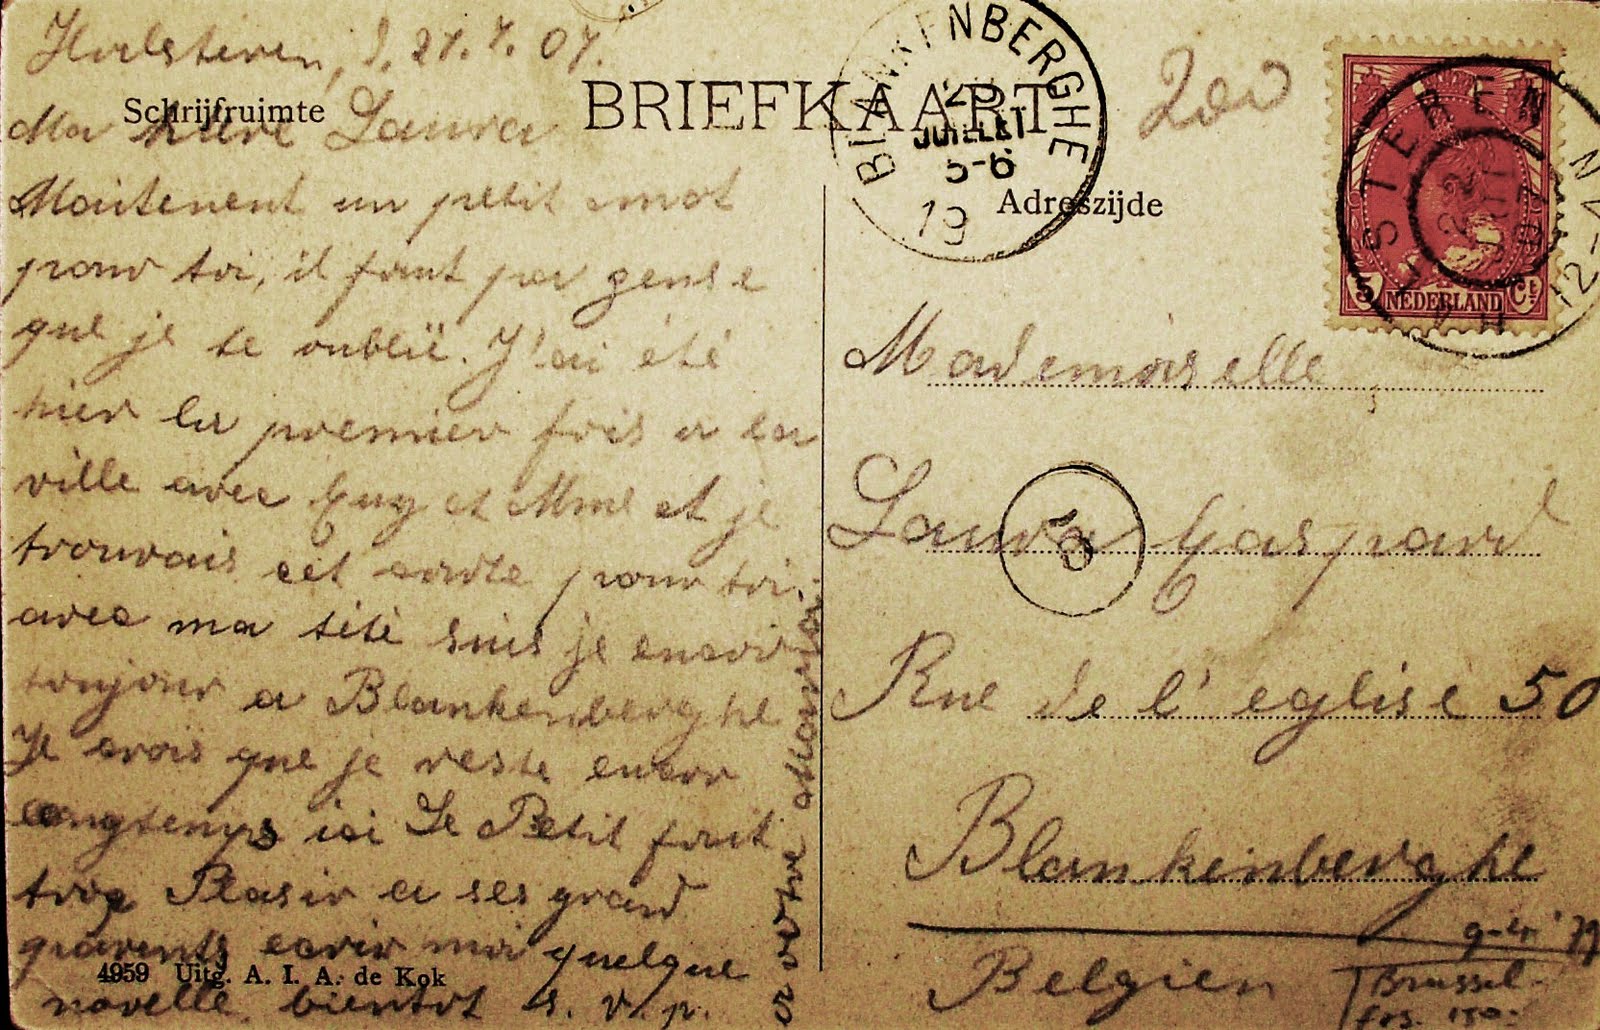 Halsteren, d. 21.7.07.
Schrijfruimte
BRIEFKAART
Adreszijde
Ma chere Laura
Maitenent un petit mot
pour toi, il faut pas pense
que je te oublië. J'ai été
hier la premier fois a la
ville avec Guy et Mme et je
trouvais cet carte pour toi.
avec ma tété suis je encoir
toujour a Blankenberghe
Je crois que je reste encor
longtemps ici Le Petit fait
trop Plasir a ses grand
parents ecrir moi quelque
novelle bientot s. v. p.
a votre
4959 Uitg. A. I. A. de Kok
BLANKENBERGHE
JUILLET
5-6
19
200
NEDERLAND
5 Ct
HALSTEREN
22
Mademoiselle
Laura Gaspard
5
Rue de l'eglise 50
Blankenberghe
Belgien
Brussel
frs. 150.-